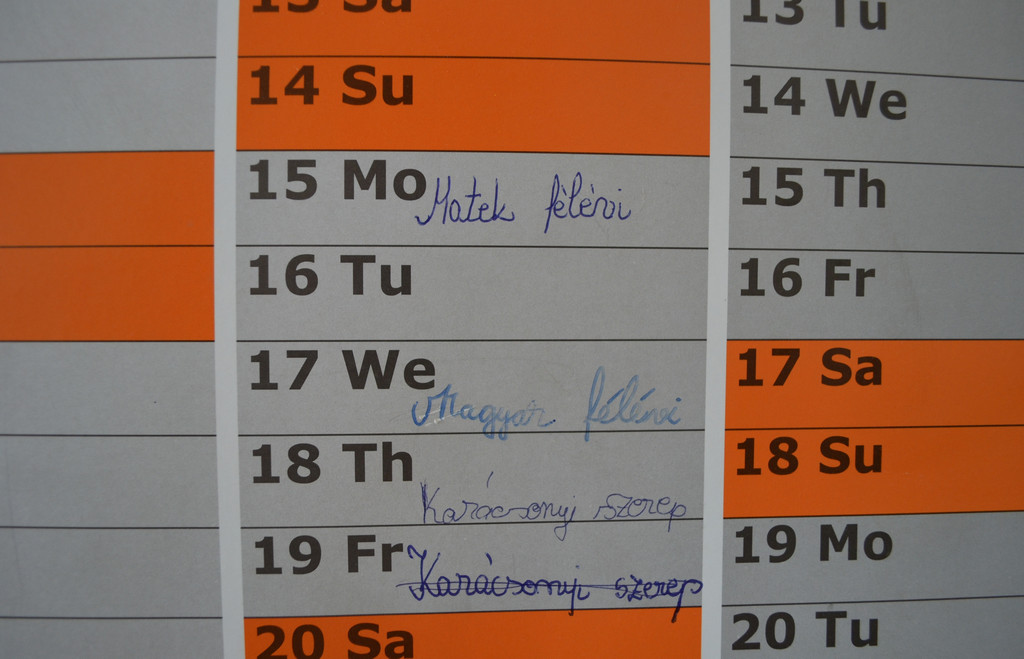 13 Sa
14 Su
15 Mo Matek félévi
16 Tu
17 We Magyar félévi
18 Th Karácsonyi szerep
19 Fr Karácsonyi szerep
20 Sa
13 Tu
14 We
15 Th
16 Fr
17 Sa
18 Su
19 Mo
20 Tu